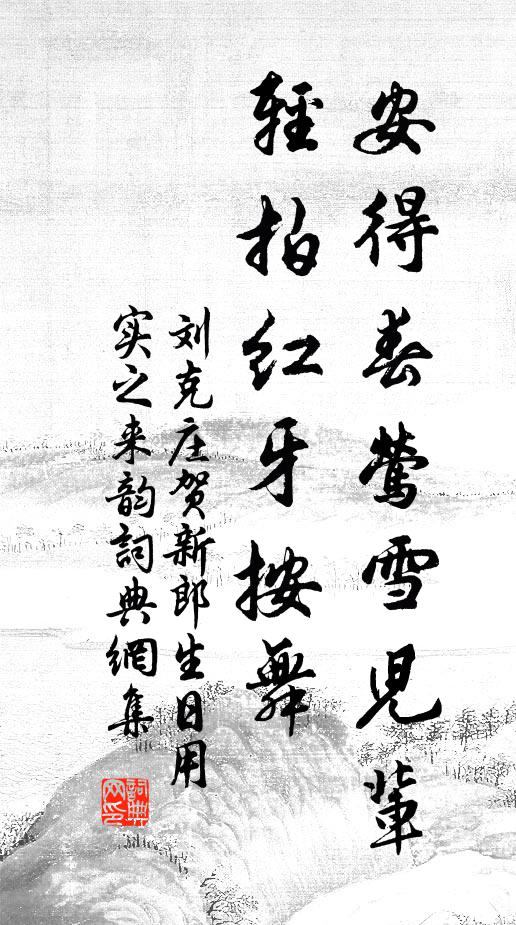 安得春莺雪児輩
輕拍红牙按舞
刘克庄贺新郎生日用
实之来韵詞典網集
詞典网印